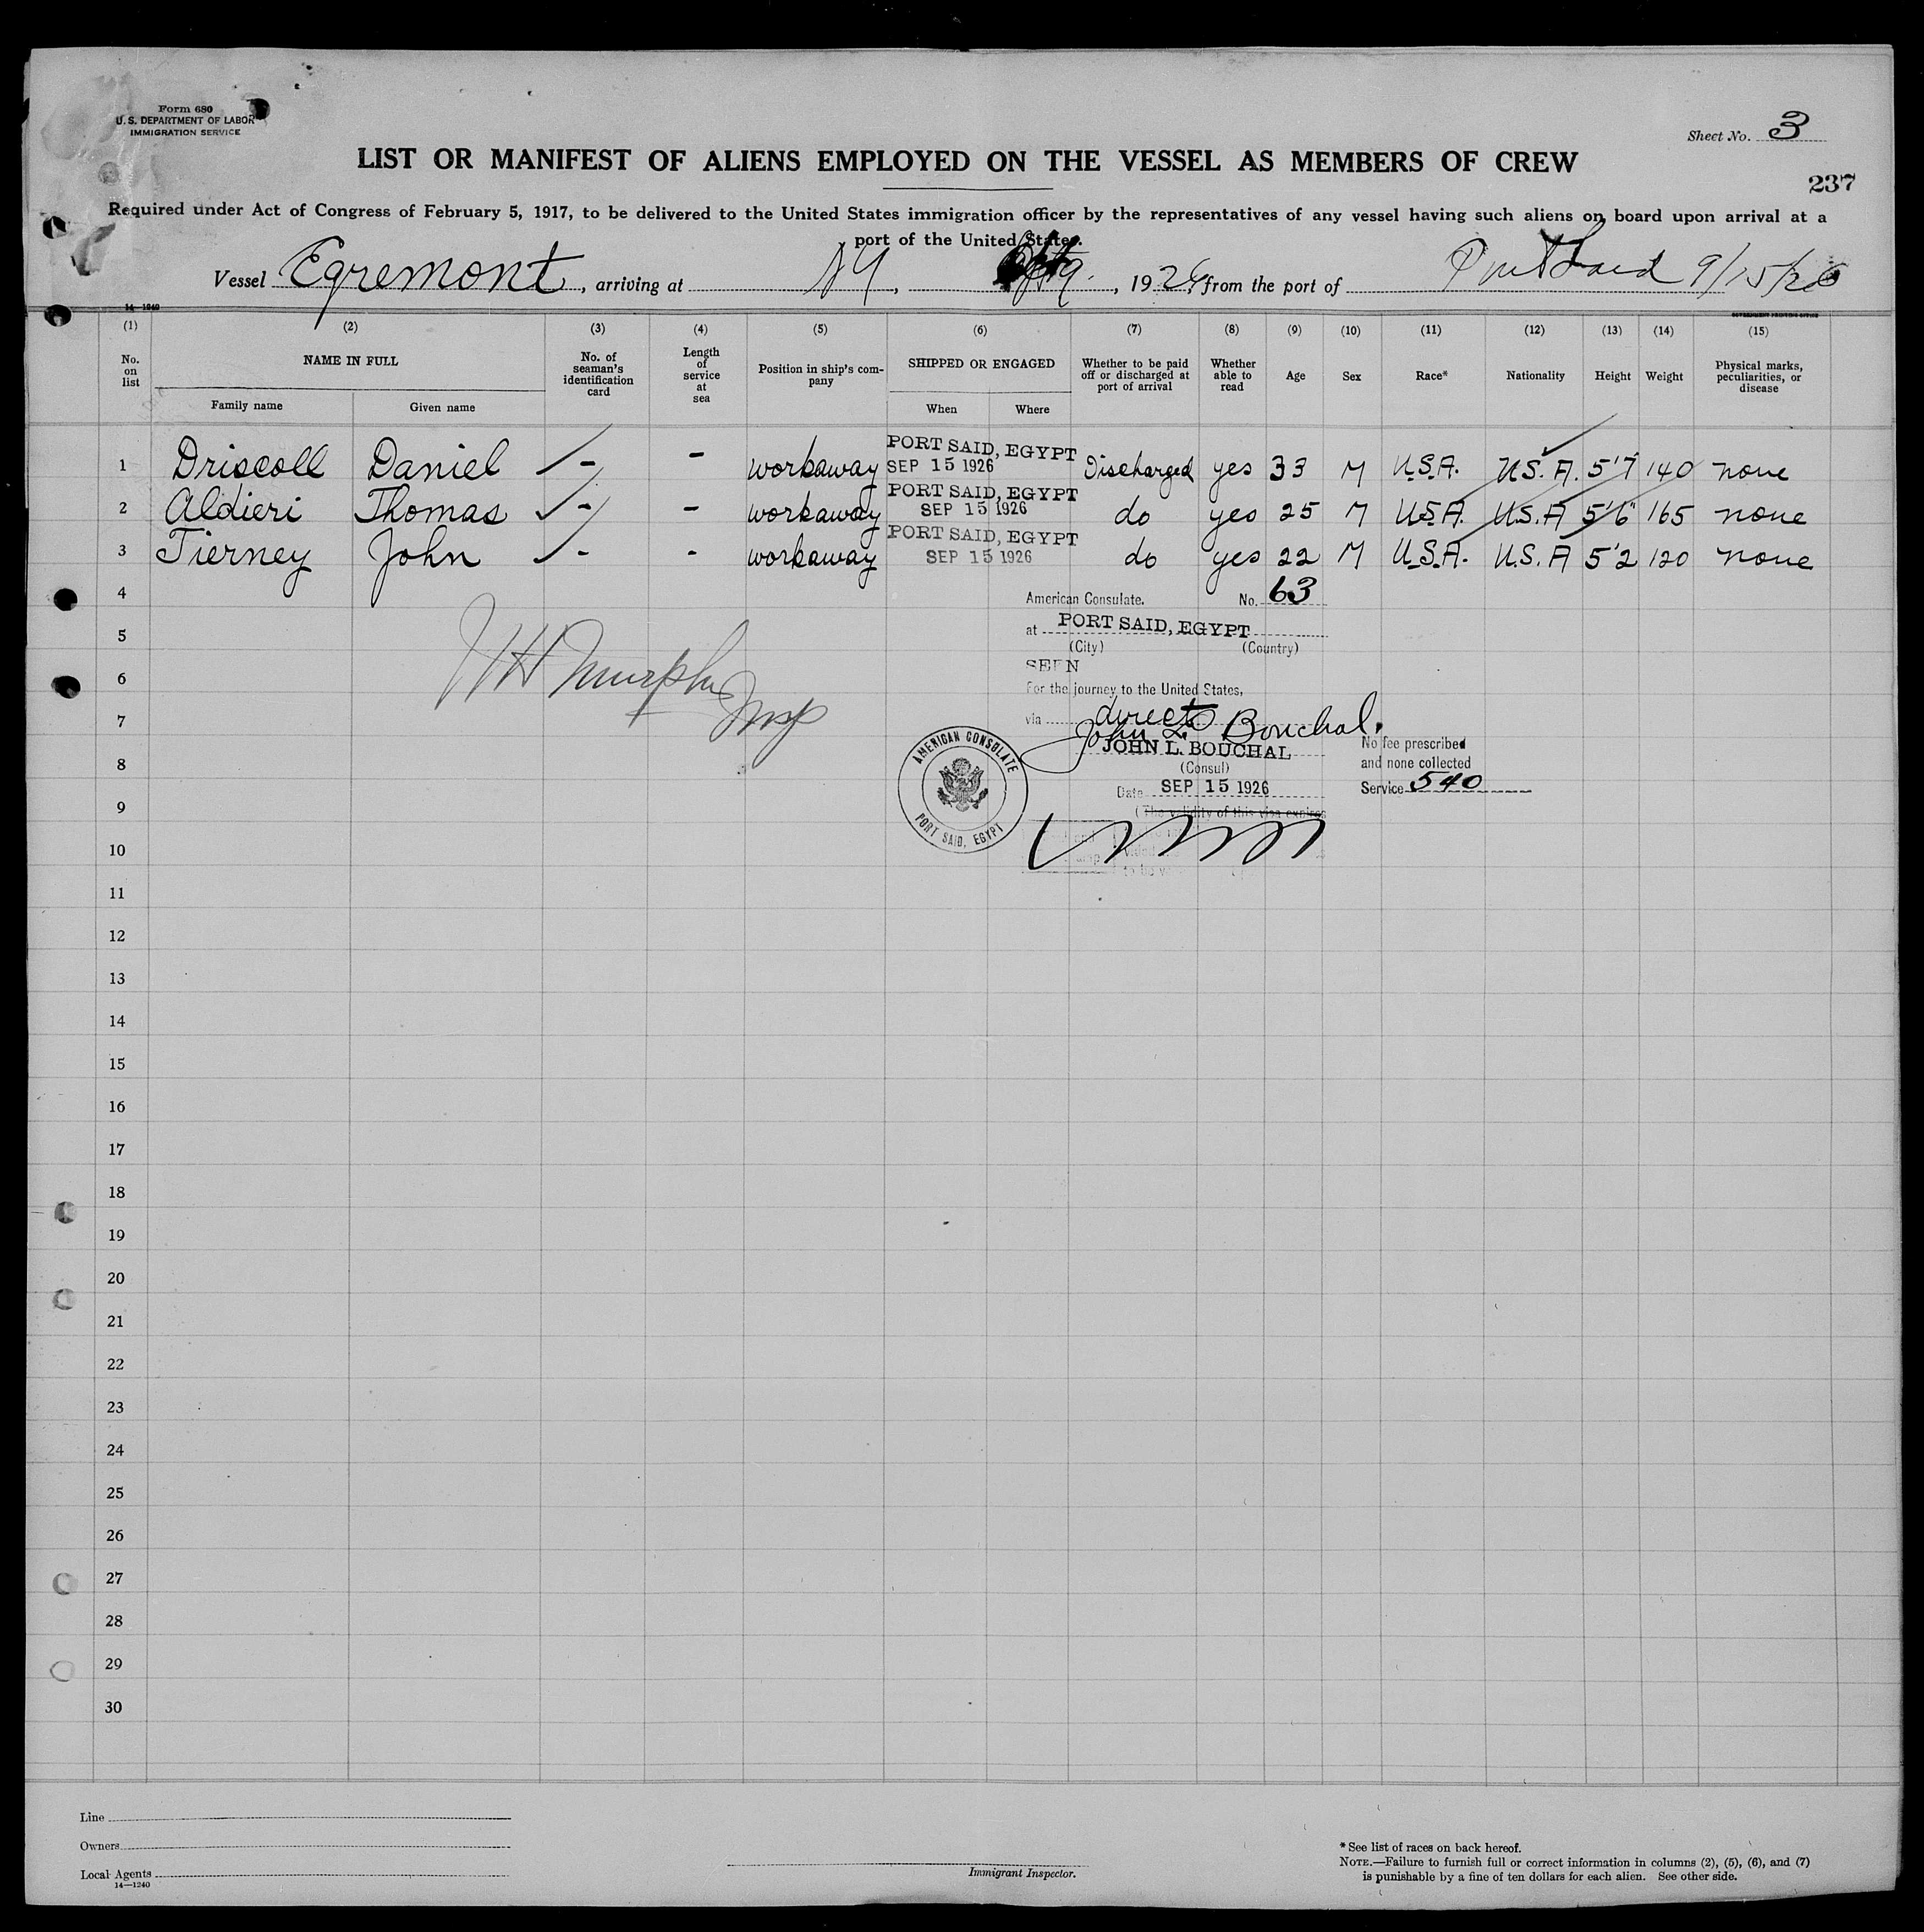 Form 680
U. S. DEPARTMENT OF LABOR
IMMIGRATION SERVICE
Sheet No. 3
LIST OR MANIFEST OF ALIENS EMPLOYED ON THE VESSEL AS MEMBERS OF CREW
237
Required under Act of Congress of February 5, 1917, to be delivered to the United States immigration officer by the representatives of any vessel having such aliens on board upon arrival at a
port of the United States.
Vessel Egremont, arriving at NY, , 1926, from the port of Port Said 9/15/26
14—1240
GOVERNMENT PRINTING OFFICE
(1) (2) (3) (4) (5) (6) (7) (8) (9) (10) (11) (12) (13) (14) (15)
No. on list
NAME IN FULL
Family name Given name
No. of seaman's identification card
Length of service at sea
Position in ship's company
SHIPPED OR ENGAGED
When Where
Whether to be paid off or discharged at port of arrival
Whether able to read
Age
Sex
Race*
Nationality
Height
Weight
Physical marks, peculiarities, or disease
1 Driscoll Daniel ✓ - - workaway PORT SAID, EGYPT SEP 15 1926 Discharged yes 33 M U.S.A. U.S.A. 5'7 140 none
2 Aldieri Thomas ✓ - - workaway PORT SAID, EGYPT SEP 15 1926 do yes 25 M U.S.A. U.S.A 5'6" 165 none
3 Tierney John ✓ - - workaway PORT SAID, EGYPT SEP 15 1926 do yes 22 M U.S.A. U.S.A 5'2 120 none
4
American Consulate. No. 63
5
at PORT SAID, EGYPT
(City) (Country)
SEEN
6
For the journey to the United States,
JH Murphy
Insp
7
via direct
John L. Bouchal.
JOHN L. BOUCHAL
(Consul)
No fee prescribed
and none collected
Service 540
8
Date SEP 15 1926
(The validity of this visa expires
AMERICAN CONSULATE
PORT SAID, EGYPT
9
10
11
12
13
14
15
16
17
18
19
20
21
22
23
24
25
26
27
28
29
30
Line
Owners
Local Agents
14—1240
Immigrant Inspector.
* See list of races on back hereof.
NOTE.—Failure to furnish full or correct information in columns (2), (5), (6), and (7)
is punishable by a fine of ten dollars for each alien. See other side.